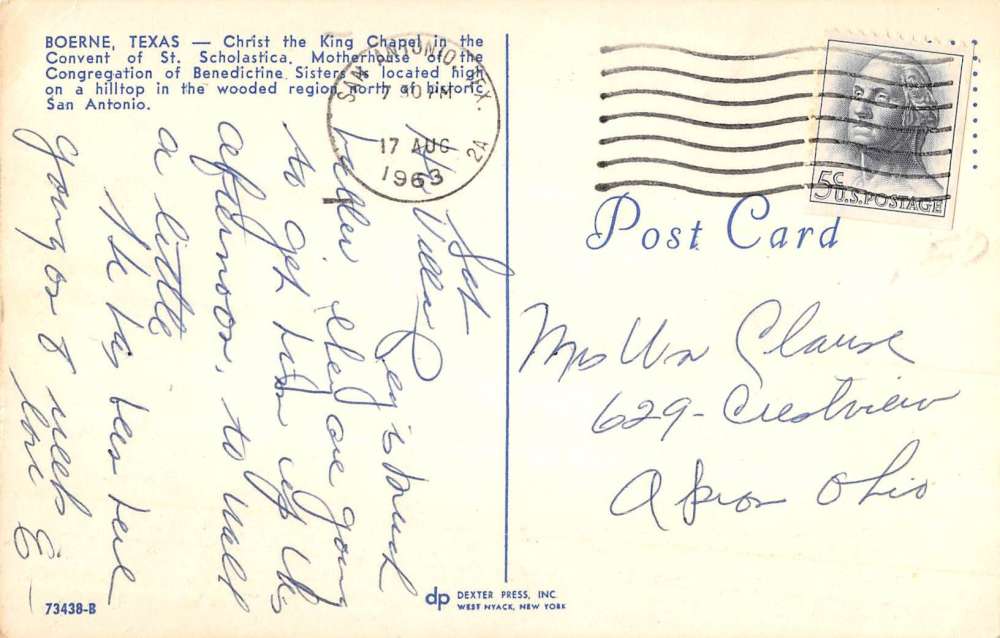 BOERNE, TEXAS — Christ the King Chapel in the
Convent of St. Scholastica, Motherhouse of the
Congregation of Benedictine Sisters is located high
on a hilltop in the wooded region north of historic
San Antonio.
SAN ANTONIO, TEX.
7 30 PM
17 AUG
1963
2A
5c
U.S. POSTAGE
Post Card
Mrs Wm Clause
629 - Crestview
Akron Ohio
Sat
Hi
is much
better. They are going
to get him up this
afternoon, to walk
a little
He has been here
going on 2 weeks
love E
73438-B
dp DEXTER PRESS, INC.
WEST NYACK, NEW YORK